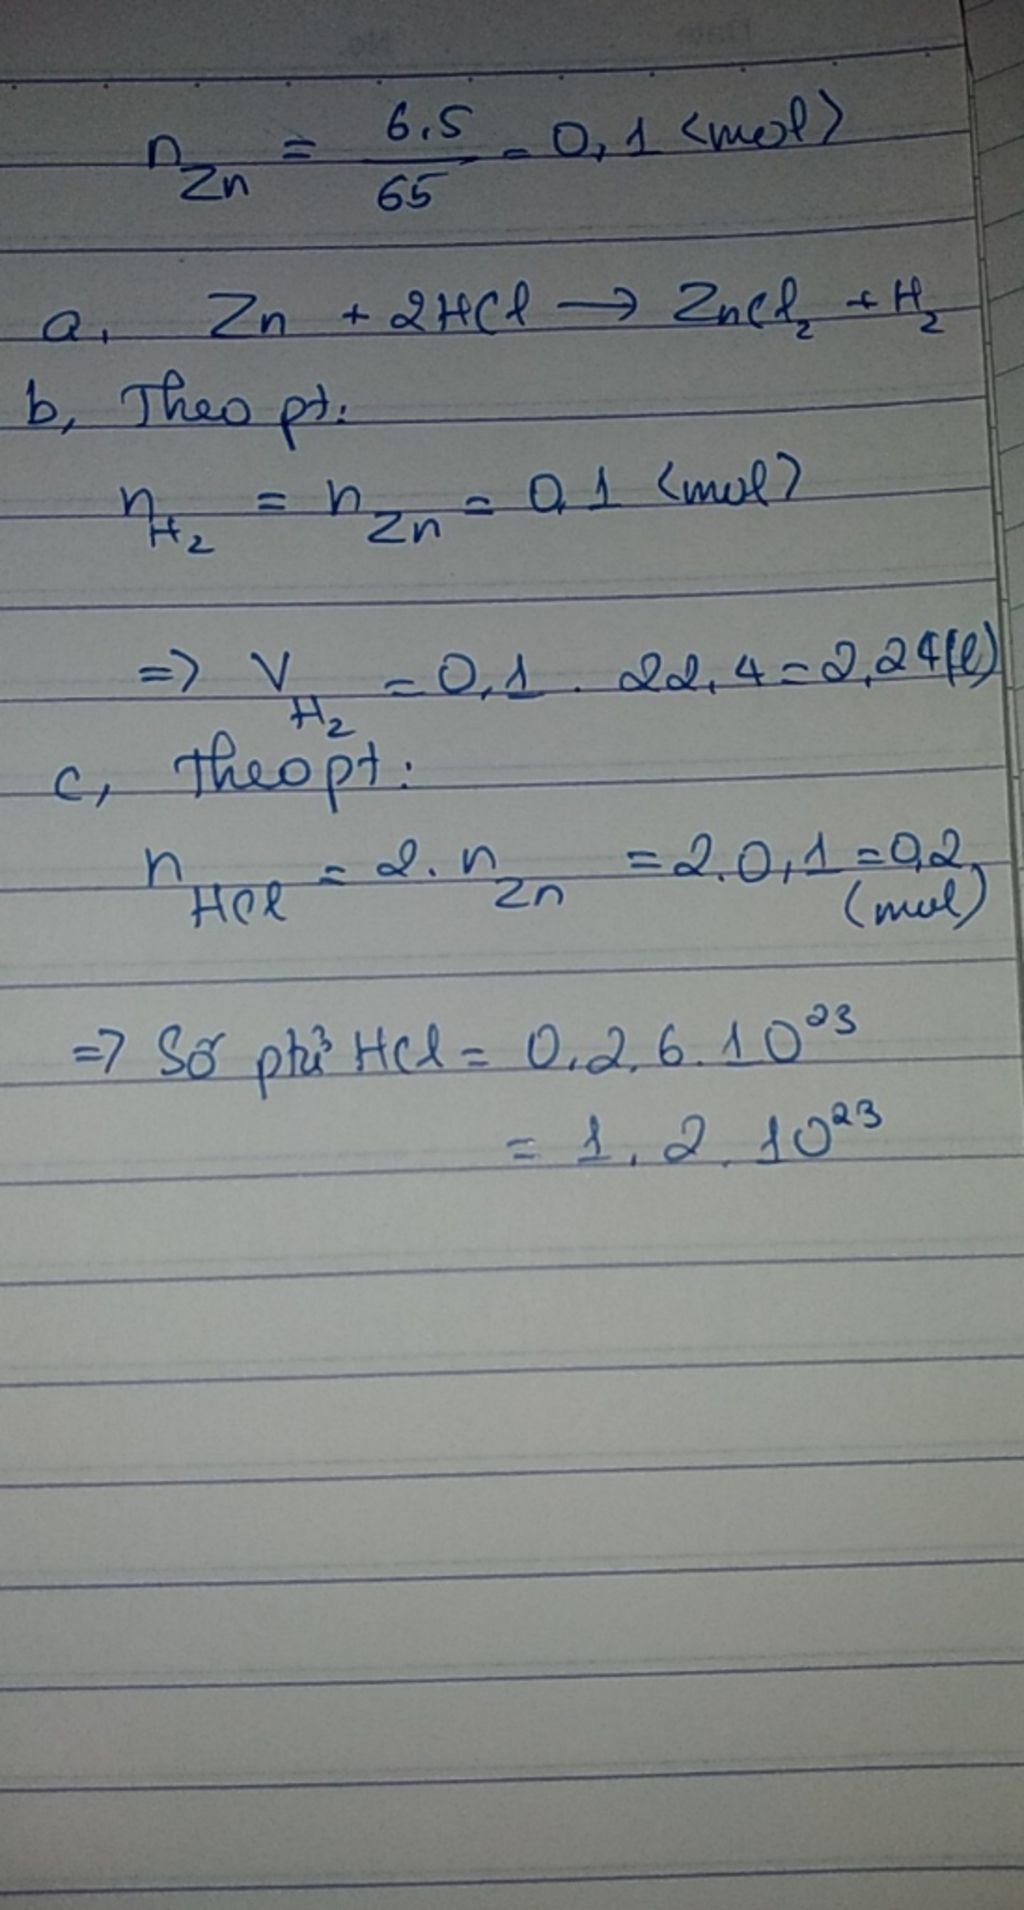 n_Zn = 6,5/65 = 0,1 <mol>
a, Zn + 2HCl → ZnCl₂ + H₂
b, Theo pt:
n_H₂ = n_Zn = 0,1 <mol>
=> V_H₂ = 0,1 . 22,4 = 2,24 (l)
c, Theo pt:
n_HCl = 2. n_Zn = 2.0,1 = 0,2
(mol)
=> Số ptử HCl = 0,2.6.10²³
= 1,2.10²³